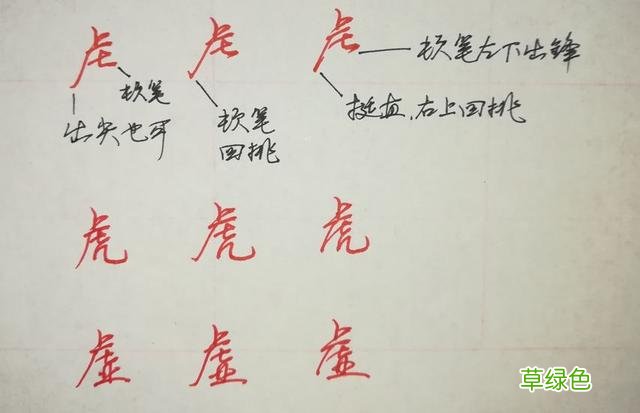 虍 虍 虍
顿笔左下出锋
顿笔
出尖也可
顿笔
回挑
挺直,右上回挑
虎 虎 虎
虚 虚 虚
草绿色